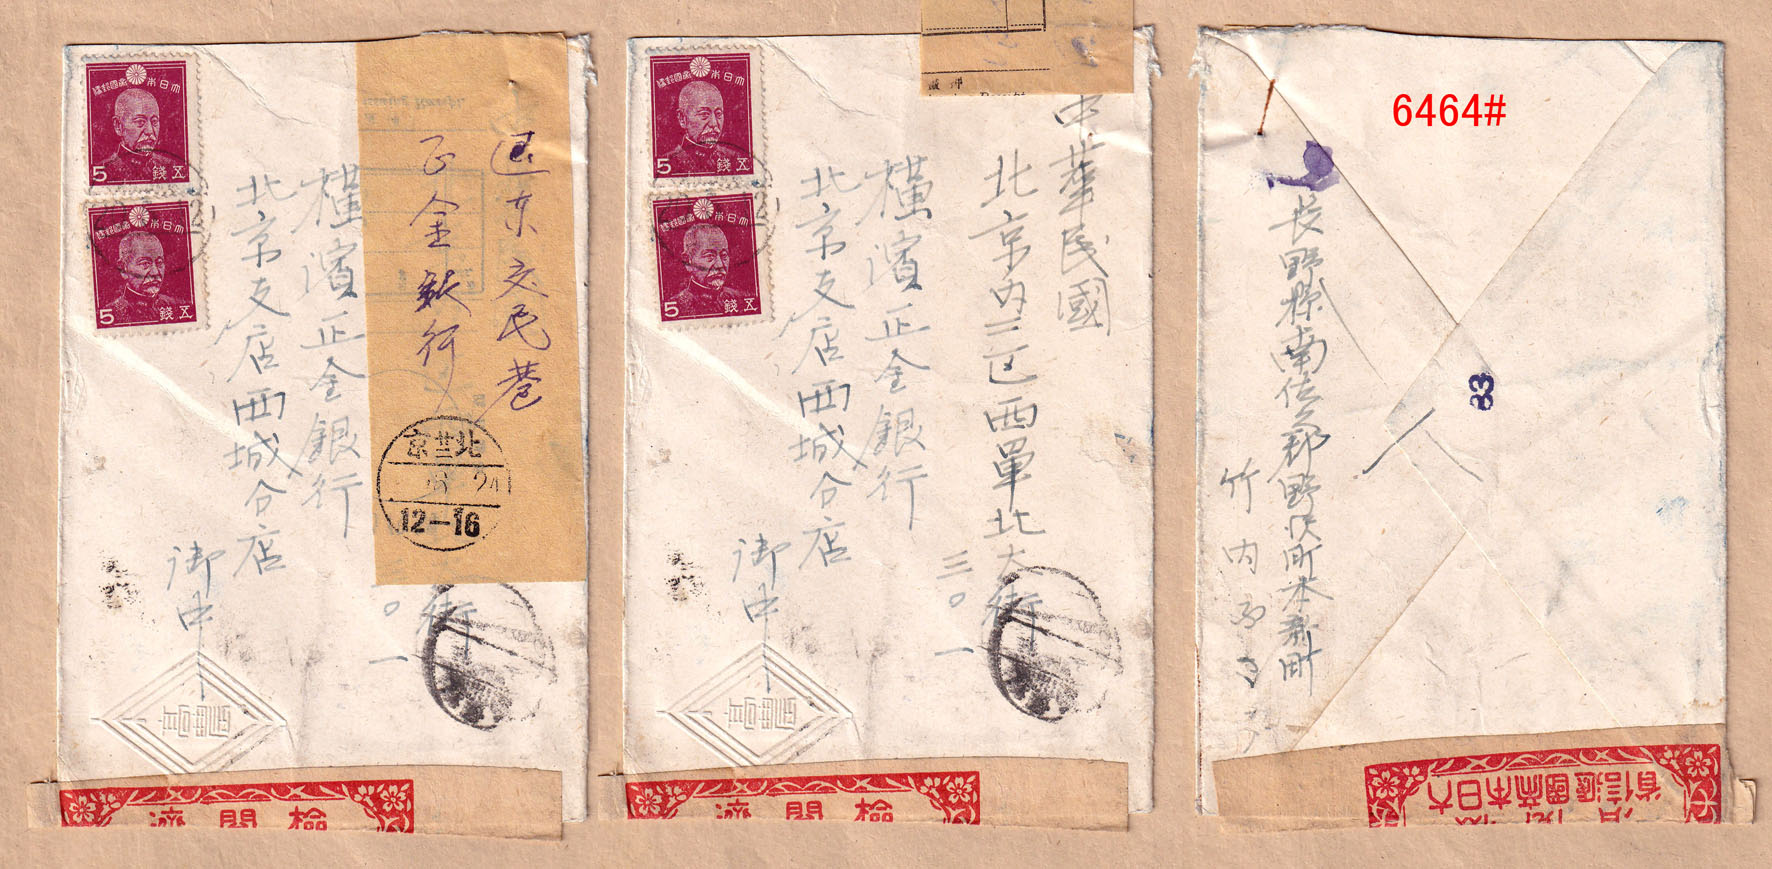 大日本帝國郵便
5 錢五
大日本帝國郵便
5 錢五
東交民巷
正金銀行
北京
12—16
橫濱正金銀行
北京支店西城分店
御中
街
三〇一
檢閱濟
大日本帝國郵便
5 錢五
大日本帝國郵便
5 錢五
中華民國
北京內三区西單北大街
三〇一
橫濱正金銀行
北京支店西城分店
御中
檢閱濟
6464#
長野縣南佐久郡野沢町本新町
竹内
83
大日本帝國遞信省